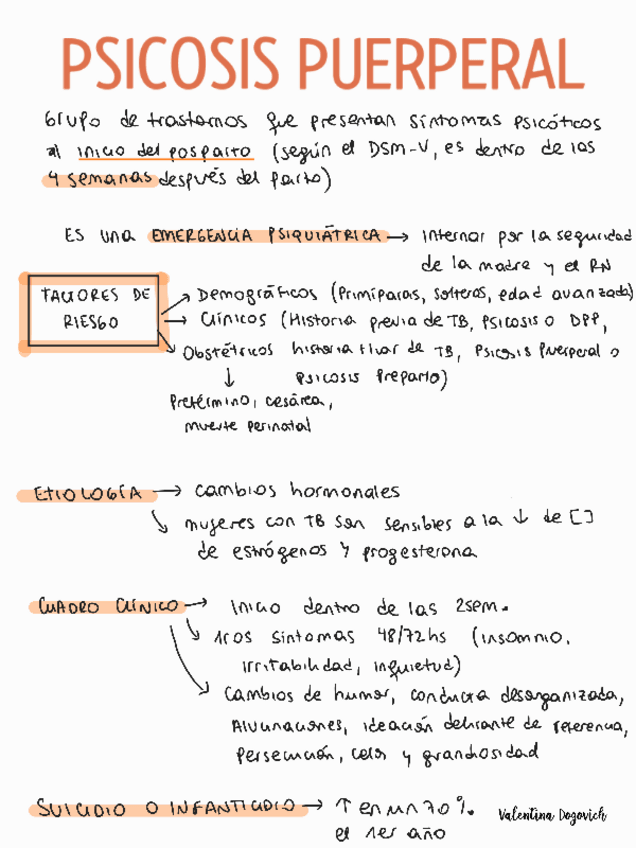 PSICOSIS PUERPERAL
Grupo de trastornos que presentan síntomas psicóticos
al inicio del posparto (según el DSM-V, es dentro de las
4 semanas después del parto)
ES UNA EMERGENCIA PSIQUIÁTRICA → internar por la seguridad
de la madre y el RN
FACTORES DE
RIESGO
→ Demográficos (Primíparas, solteras, edad avanzada)
→ Clínicos (Historia previa de TB, psicosis o DPP,
historia fliar de TB, psicosis puerperal o
psicosis preparto)
→ Obstétricos
↓
Pretérmino, cesárea,
muerte perinatal
ETIOLOGÍA → cambios hormonales
→ mujeres con TB son sensibles a la ↓ de []
de estrógenos y progesterona
CUADRO CLÍNICO → Inicio dentro de las 2sem.
→ 1ros síntomas 48/72hs (insomnio,
irritabilidad, inquietud)
→ Cambios de humor, conducta desorganizada,
Alucinaciones, ideación delirante de referencia,
persecución, celos y grandiosidad
SUICIDIO O INFANTICIDIO → ↑ en un 70%.
el 1er año
Valentina Dogovich